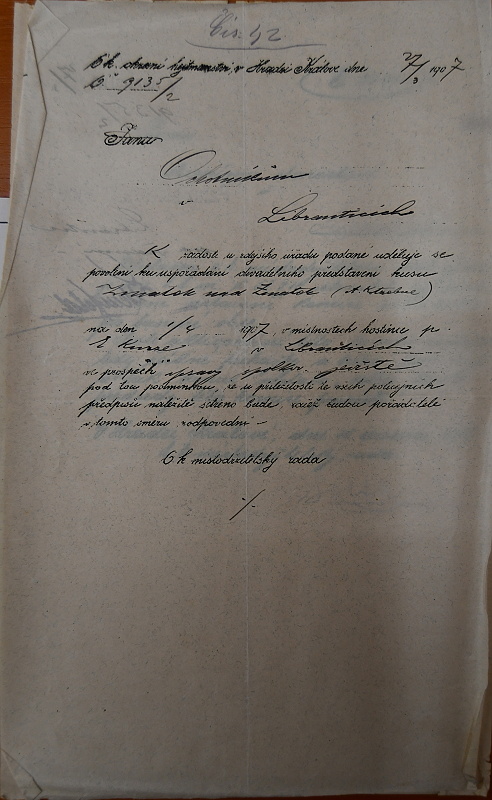 Čís. 42
C k okresní hejtmanství v Hradci Králové dne 27/3 1907
Č 9135/2
Panu
v
Librantících
K žádosti u zdejšího úřadu podané uděluje se
povolení ku uspořádání divadelního představení kusu
Zmatek nad Zmatek (A. Kotzebue)
na den 1/4 1907, v místnostech hostince p.
v Librantících
ve prospěch úpravy spolkov. jeviště
pod tou podmínkou, že u příležitosti té všech policejních
předpisů náležitě šetřeno bude, začež budou pořadatelé
v tomto směru zodpovědni –
C k místodržitelský rada